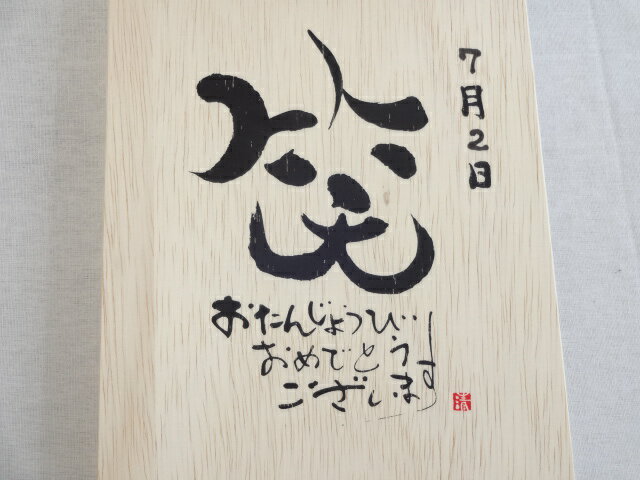 7月2日
笑
おたんじょうび
おめでとう
ございます